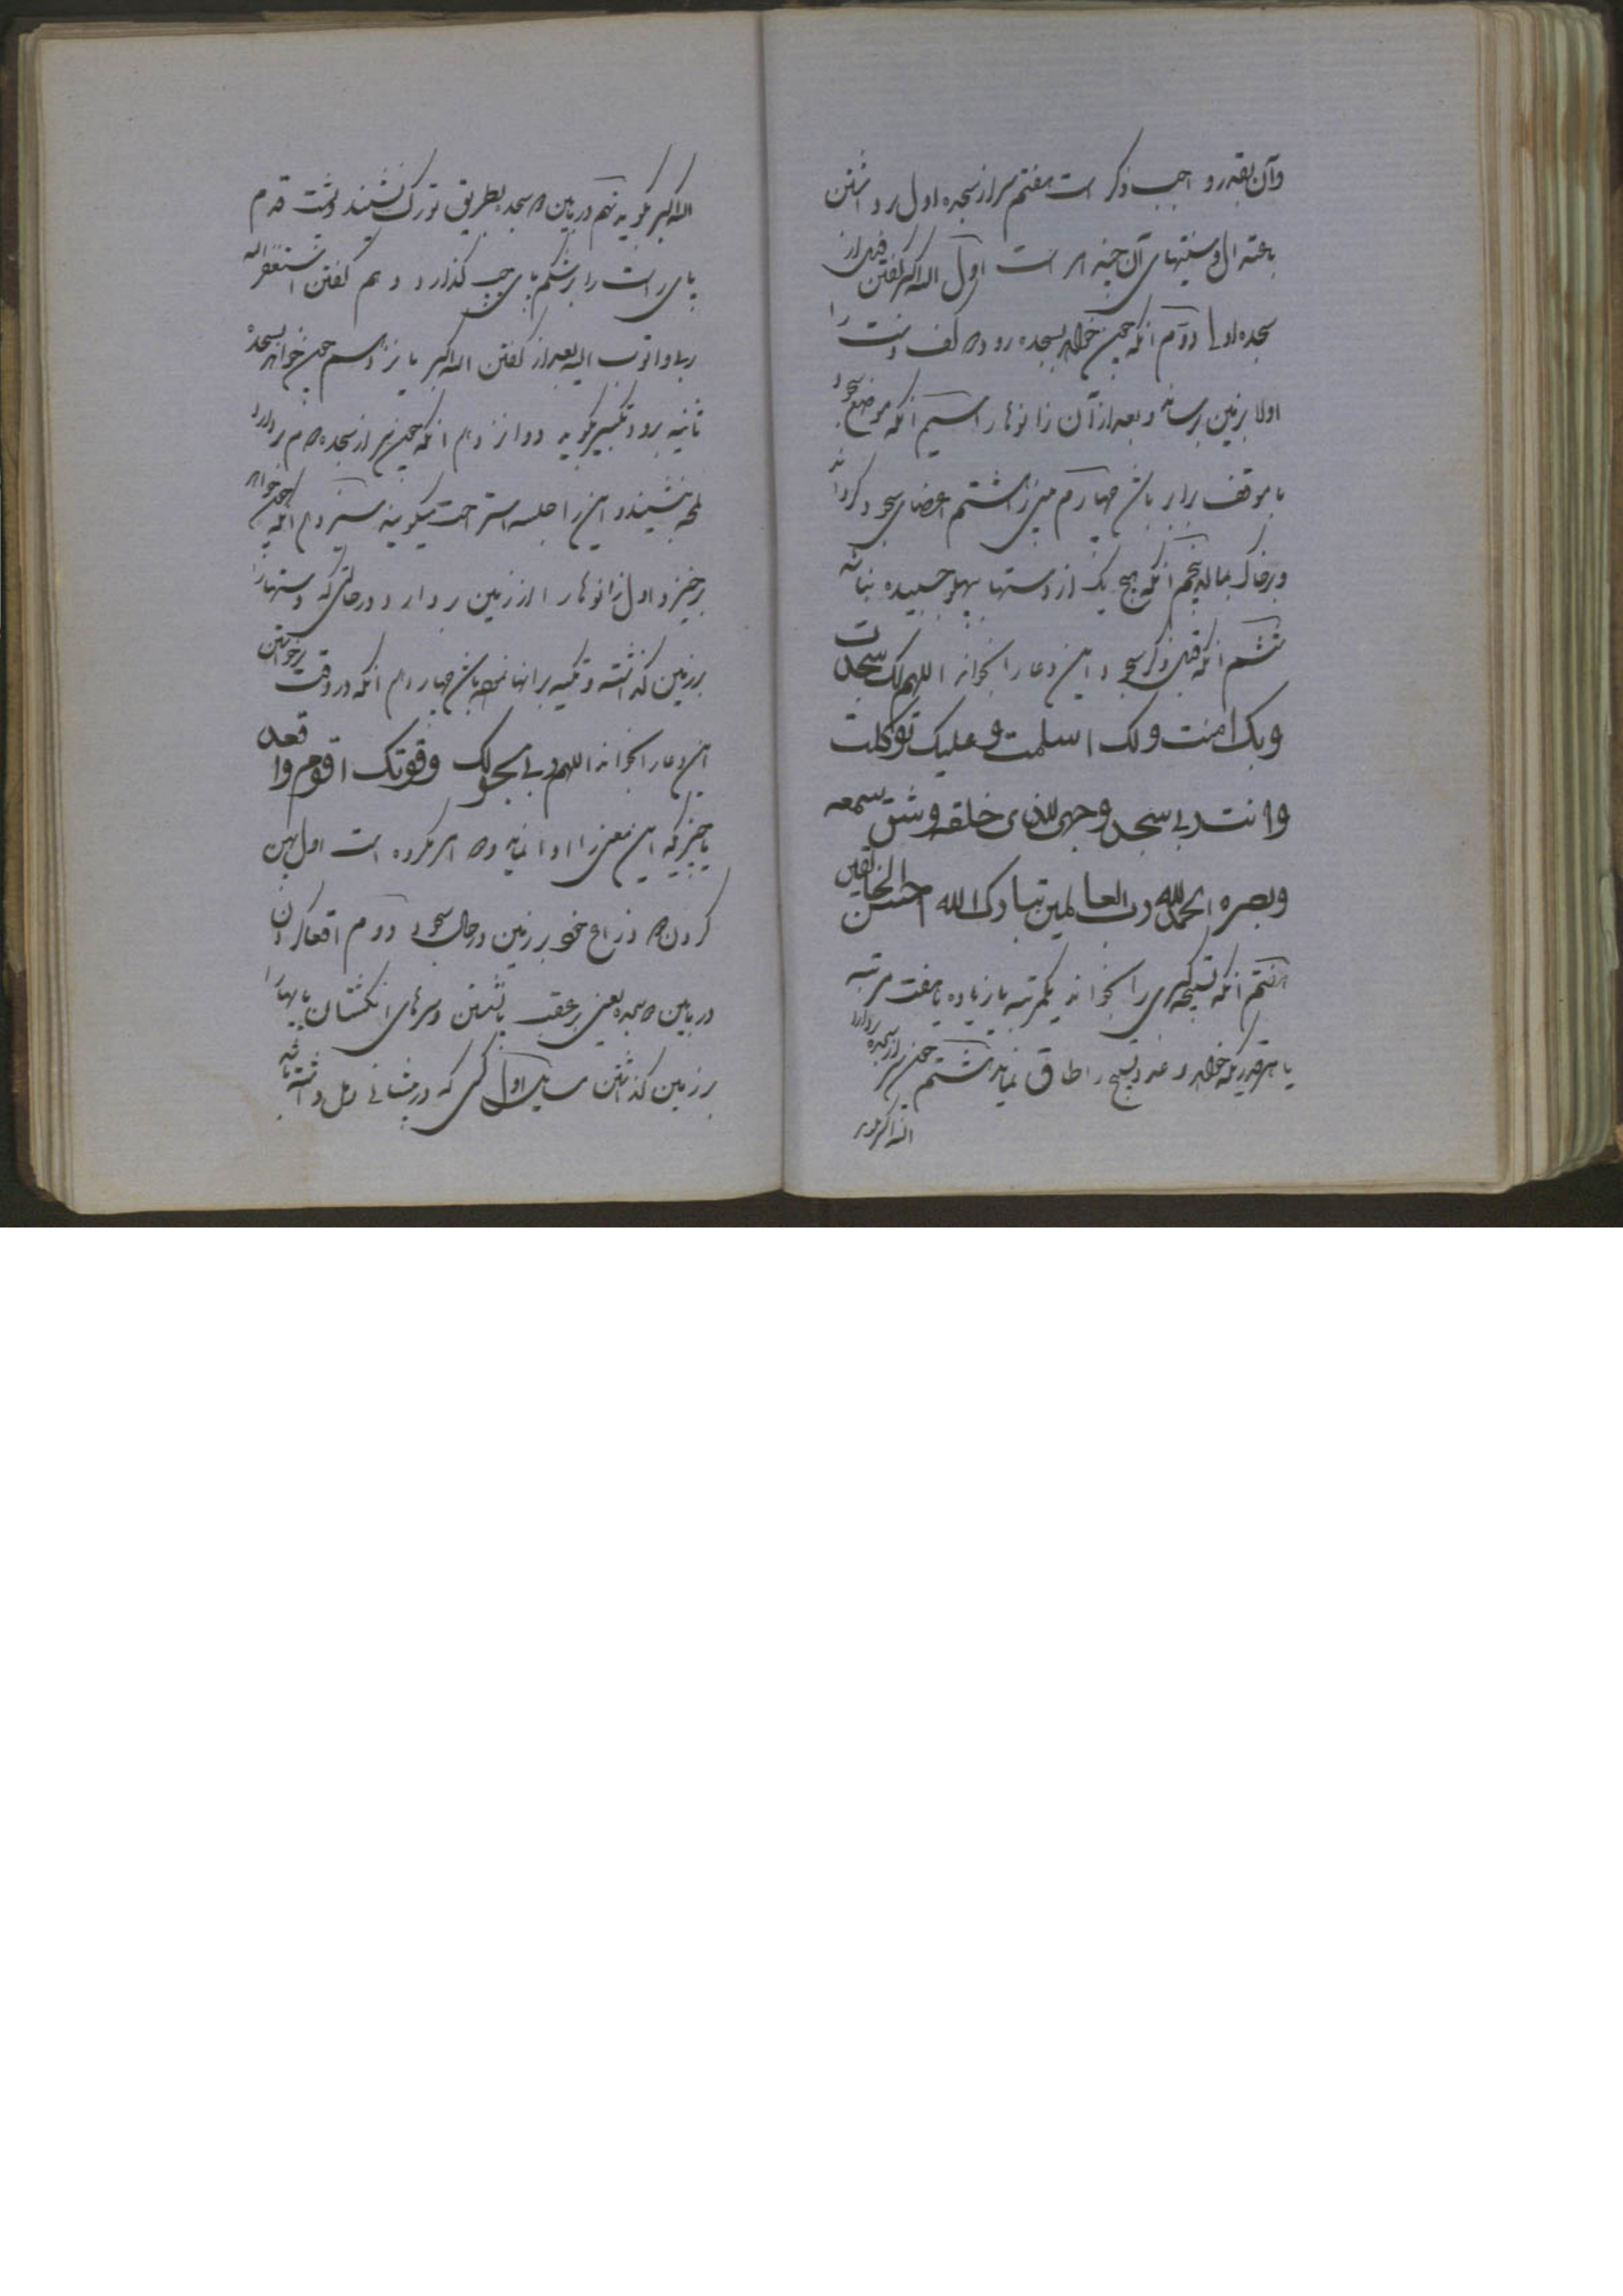 وآن بقدر واجب ذکر است هفتم سر از سجده اول برداشتن
باعتدال وسنتهای آن چند امر است اول الله اکبر گفتن قبل از
سجده اولی دوم آنکه چون خواهد بسجده رود دو کف دست را
اولا بزمین رساند وبعد از آن زانوها را سیم آنکه موضع سجود
با موقف برابر باشد چهارم میان هشتم اعضای سجود گرداند
وبر خاک بمالد پنجم آنکه هیچ یک از دستها بپهلو چسبیده نباشد
ششم آنکه قبل ذکر سجود این دعا را بخواند اللهم لک سجدت
وبک امنت ولک اسلمت وعلیک توکلت
وانت ربی سجد وجهی للذی خلقه وشق سمعه
وبصره الحمدلله رب العالمین تبارک الله احسن الخالقین
هفتم آنکه تسبیح کبری را بخواند یکمرتبه یا زیاده یا هفت مرتبه
یا هر قدریکه خواهد وعدد تسبیح را طاق نماید هشتم چون سر از سجده بردارد
الله اکبر گوید
الله اکبر گوید نهم در مابین دو سجده بطریق تورک نشیند وپشت قدم
پای راست را بر شکم پای چپ گذارد دهم گفتن استغفر الله
ربی واتوب الیه بعد از گفتن الله اکبر یازدهم چون خواهد بسجده
ثانیه برود تکبیر گوید دوازدهم آنکه چون سر از سجده دوم بردارد
لمحه بنشیند واین را جلسه استراحت میگویند سیزدهم آنکه چون خواهد
برخیزد اول زانوها را از زمین بردارد در حالتی که دستها را
بر زمین گذاشته وتکیه بر آنها نموده باشد چهاردهم آنکه در وقت برخواستن
این دعا را بخواند اللهم ربی بحولک وقوتک اقوم واقعد
یا چیزیکه این معنی را ادا نماید ودو امر مکروه است اول پهن
کردن دو ذراع خود بر زمین در حال سجود دوم اقعا کردن
در مابین دو سجده یعنی بر عقب پا نشستن وسرهای انگشتان پاها را
بر زمین گذاشتن اول کسی که در پیشانی دمل داشته باشد